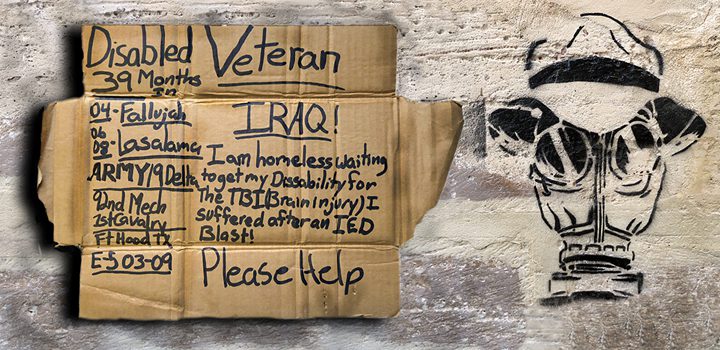 Disabled Veteran
39 Months
In
IRAQ!
04-Fallujah
06
08-Lasalama
ARMY/19Delta
92nd Mech
1st Cavalry
Ft Hood TX
E-5 03-09
I am homeless waiting
to get my Dissability for
The TBI(Brain Injury) I
suffered after an IED
Blast!
Please Help